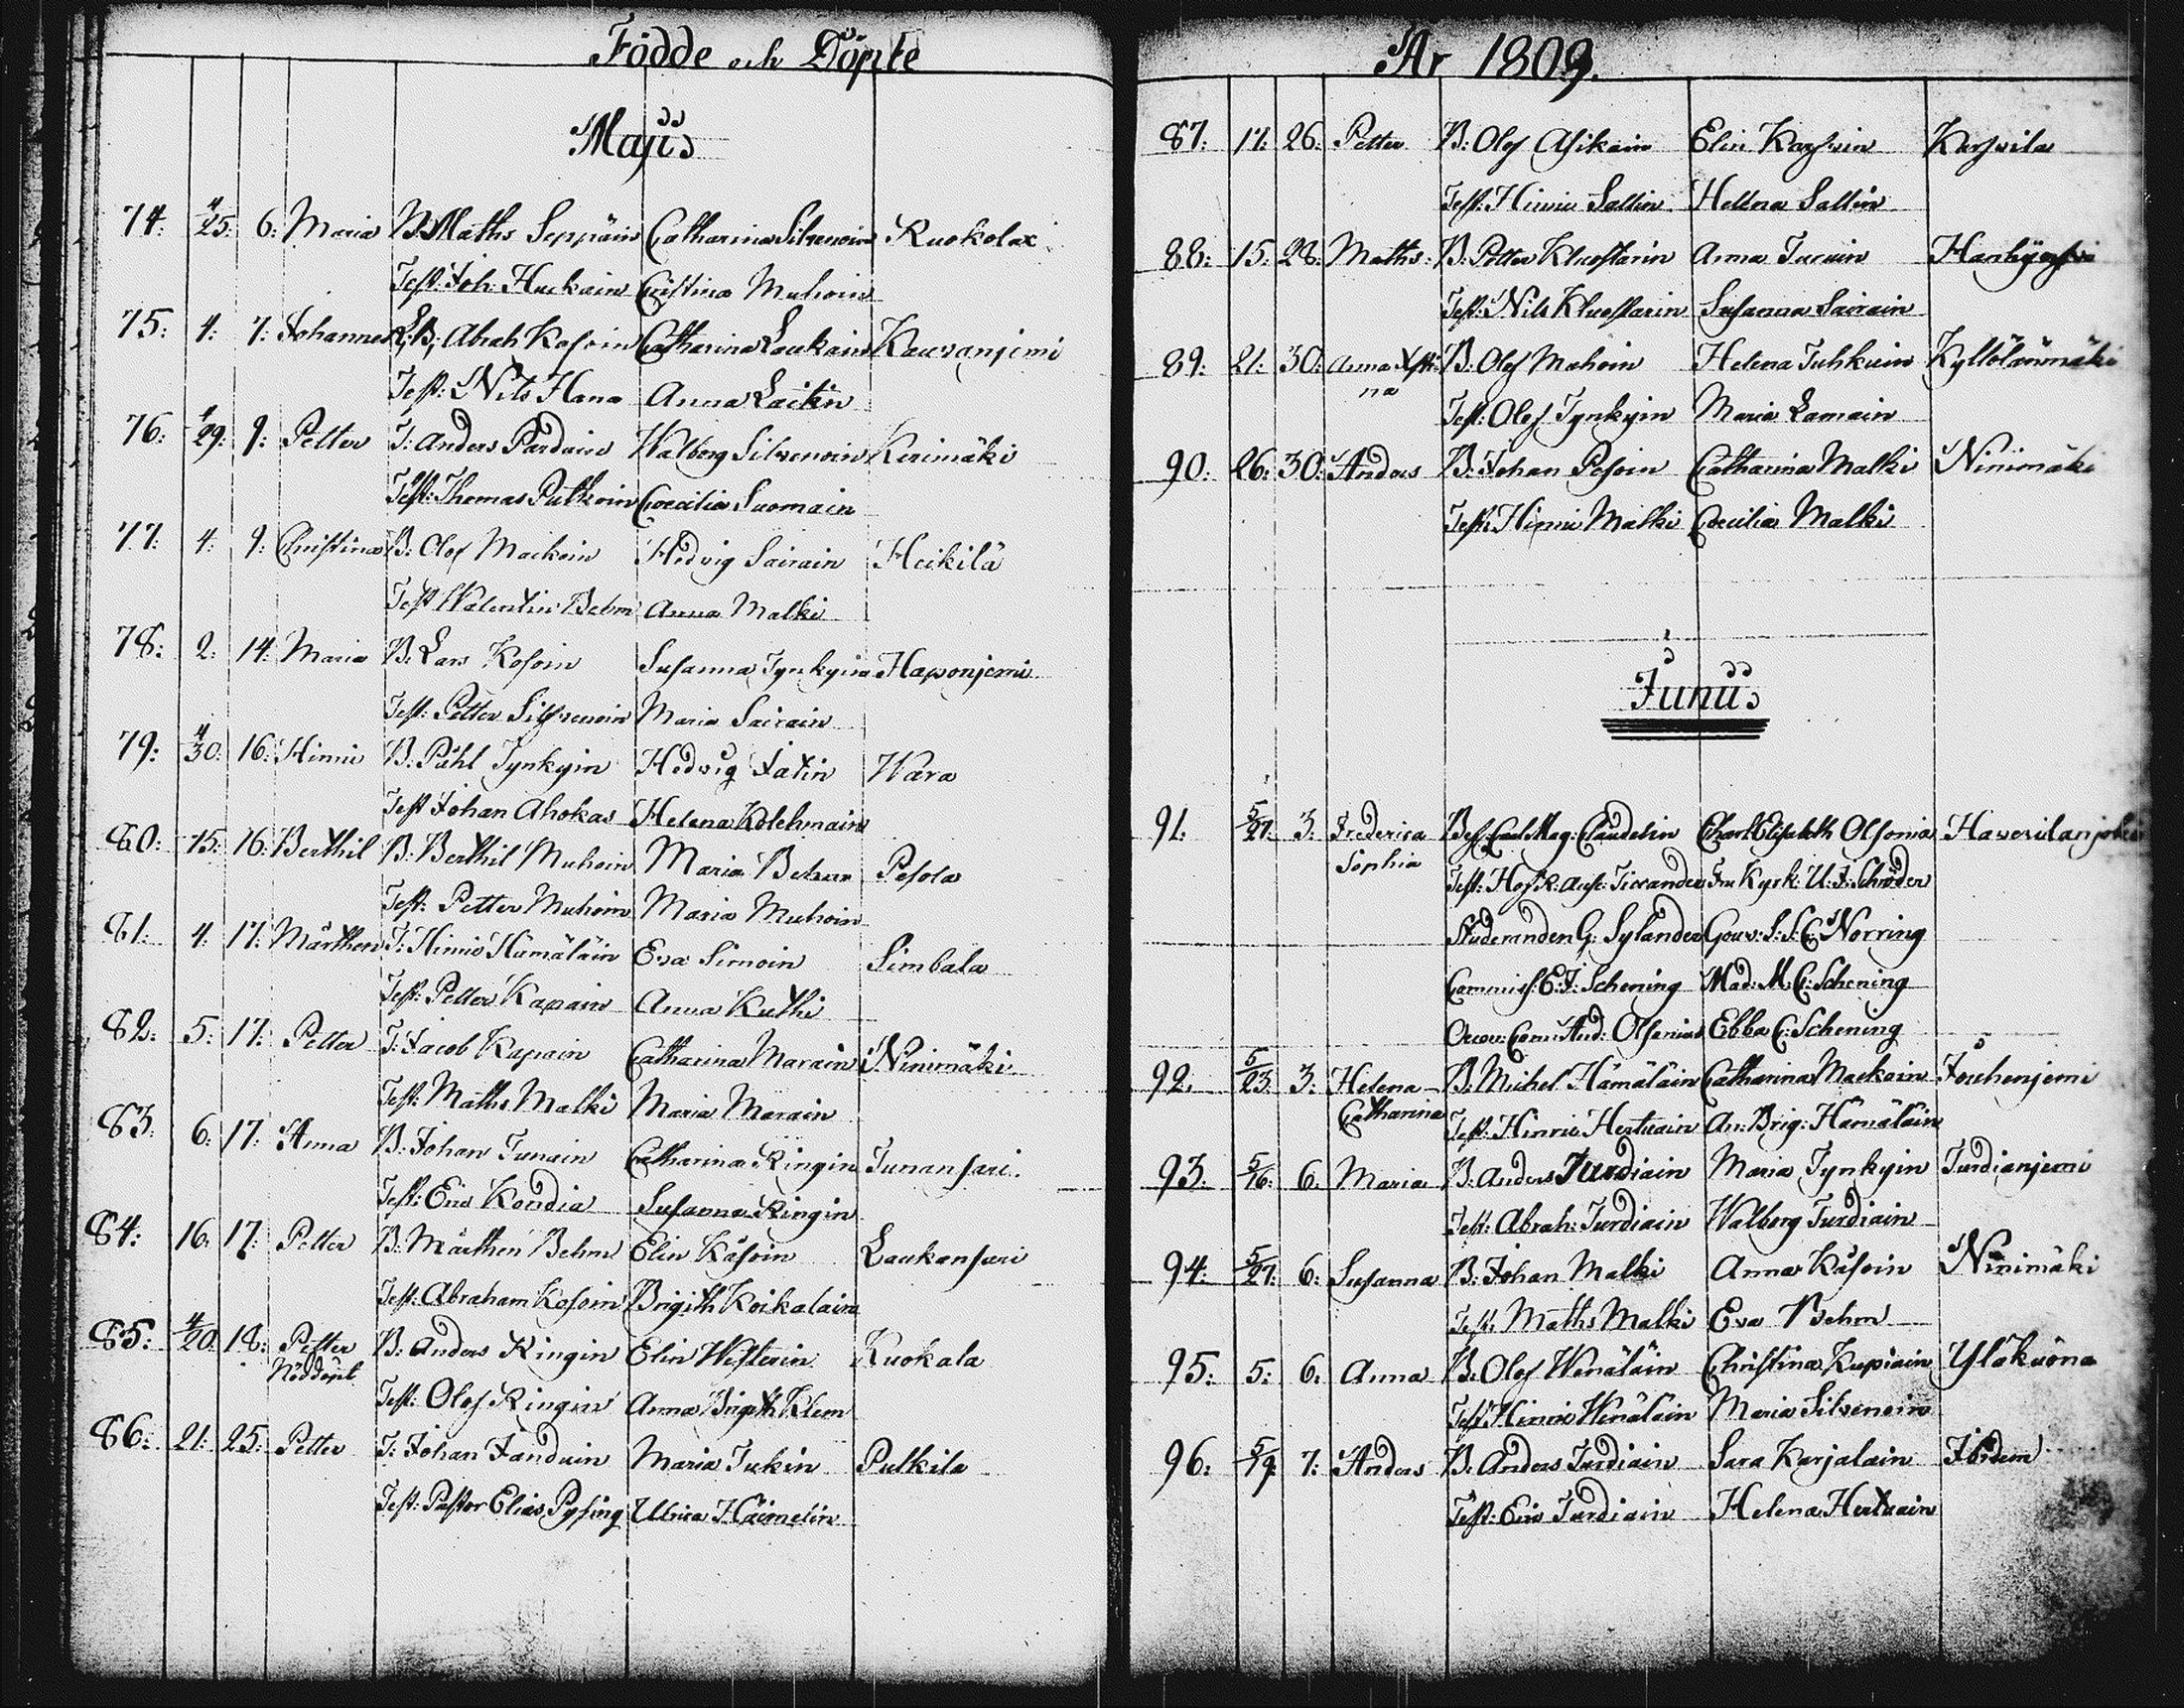 Födde och Döpte
Majus
74: 4/25: 6: Maria B: Maths Seppäin Catharina Silvenoin Ruokolax
Test: Joh: Huckain Cristina Muhoin
75: 4: 7: Johannes L:B: Abrah Kosoin Catharina Laukain Kauranjemi
Test: Nils Hana Anna Laitin
76: 4/29: 9: Petter T: Anders Parduin Walborg Silvenoin Kerimäki
Test: Thomas Pulkoin Coecilia Suomain
77: 4: 9: Christina B: Olof Mackoin Hedvig Sairain Heikilä
Test Walentin Behm Anna Malki
78: 2: 14: Maria B: Lars Kosoin Susanna Tynkyin Haponjemi
Test: Petter Silfvenoin Maria Sairain
79: 4/30: 16: Hinric B: Påhl Tynkyin Hedvig Jatin Wara
Test Johan Ahokas Helena Kolehmain
80: 15: 16: Berthil B: Berthil Muhoin Maria Behm Pesola
Test: Petter Muhoin Maria Muhoin
81: 4: 17: Mårthen T: Hinric Hämäläin Eva Simoin Simbala
Test: Petter Kapain Anna Kuthi
82: 5: 17: Petter T: Jacob Kapiain Catharina Marain Ninimäki
Test: Maths Malki Maria Marain
83: 6: 17: Anna B: Johan Tunain Catharina Ringin Tunansari.
Test: Eric Kondia Susanna Ringin
84: 16: 17: Petter B: Mårthen Behm Elin Kåsoin Laukansari
Test: Abraham Kosoin Brigith Koikalain
85: 4/20: 18: Petter B: Anders Ringin Elin Westerin Ruokala
Nöddöpt
Test: Olof Ringin Anna Brigith Klem
86: 21: 25: Petter T: Johan Janduin Maria Tukin Pulkila
Test: Pastor Elias Pysing Ulrica Haimelin
År 1809.
87: 17: 26: Petter B: Olof Asikain Elin Karvin
Test: Hinric Sallin Hellena Sallin
88: 15: 28: Maths B: Petter Kluostarin Anna
Test: Nils Kluostarin Susanna Sairain
89: 21: 30: Anna Xsti- B: Olof Mahoin Helena Tuhkuin Kyllölänmäki
na
Test: Olof Tynkyin Maria Lamain
90: 26: 30: Anders B: Johan Pesoin Catharina Malki Ninimäki
Test: Hinric Malki Coecilia Malki
Junus
91: 5/27: 3: Frederica Bef: Carl Mag: Claudelin Charl: Elisabeth Olsonia Haverilanjoki
Sophia
Test: Hof R: Ausc: Ticcander Fru Kyrk: U: F: Schröder
Studeranden G: Sylander Gouv: S: S: C: Norring
Commiss: E: J: Schening Mad: M: C: Schening
And: Olsonius Ebba C: Schening
92. 5/23: 3: Helena B: Michel Hämäläin Catharina Mackoin Jouhenjemi
Catharina
Test: Hinric Hertuain An: Brig: Hämäläin
93: 5/16: 6. Maria B: Anders Turdiain Maria Tynkyin Turdianjemi
Test: Abrah: Turdiain Walborg Turdiain
94: 5/27: 6: Susanna B: Johan Malki Anna Kåsoin Ninimäki
Test: Maths Malki Eva Behm
95: 5: 6. Anna B: Olof Wenäläin Christina Kupiain Yläkuona
Test Hinric Wenäläin Maria Silvenoin
96: 5/19 7: Anders B: Anders Turdiain Sara Karjalain
Test: Eric Turdiain Helena Hertuain